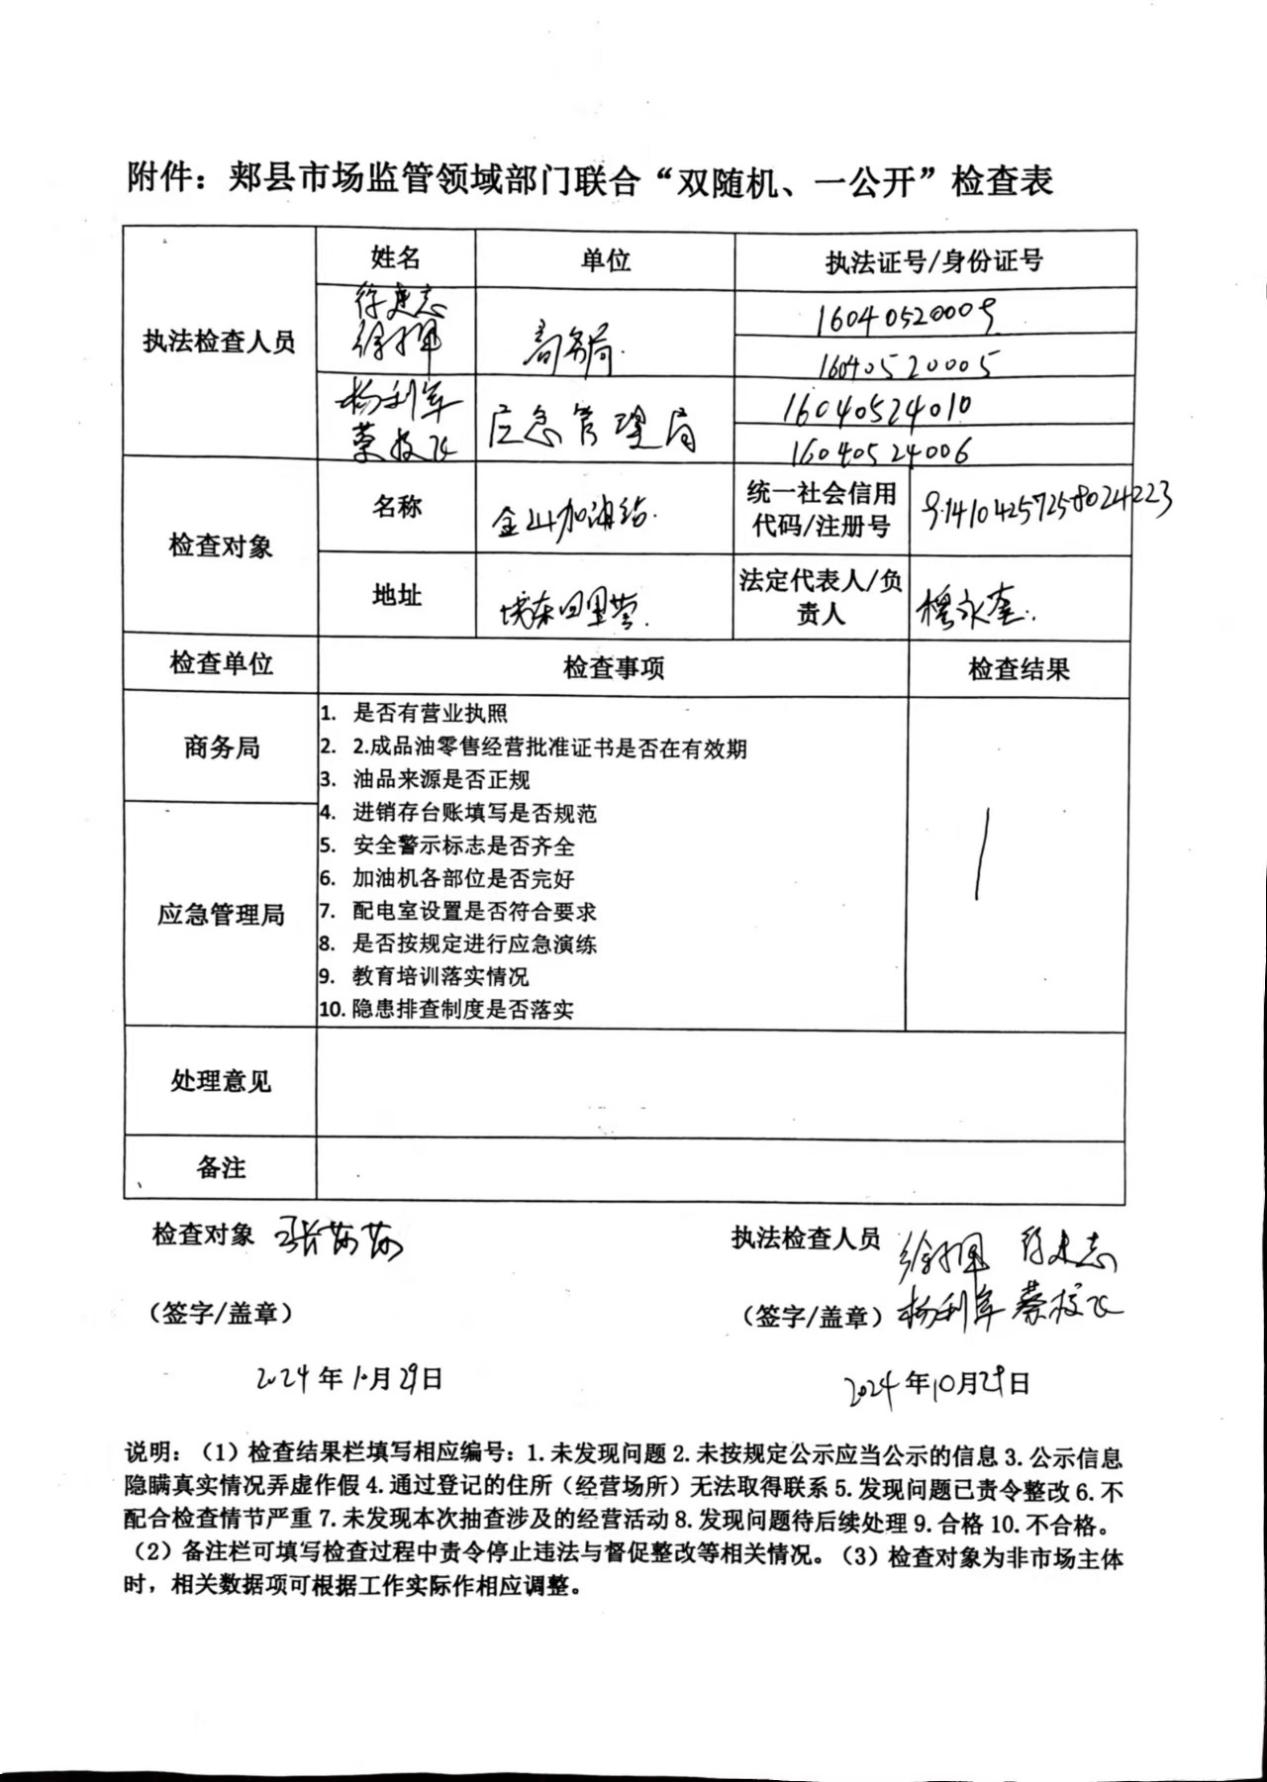 附件：郏县市场监管领域部门联合“双随机、一公开”检查表
执法检查人员
姓名
单位
执法证号/身份证号
徐建志
商务局
16040520009
16040520005
杨利军
应急管理局
16040524010
16040524006
检查对象
名称
金山加油站
统一社会信用
代码/注册号
914104257258024223
地址
法定代表人/负
责人
穆永奎
检查单位
检查事项
检查结果
商务局
1. 是否有营业执照
2. 2.成品油零售经营批准证书是否在有效期
3. 油品来源是否正规
应急管理局
4. 进销存台账填写是否规范
5. 安全警示标志是否齐全
6. 加油机各部位是否完好
7. 配电室设置是否符合要求
8. 是否按规定进行应急演练
9. 教育培训落实情况
10. 隐患排查制度是否落实
1
处理意见
备注
检查对象 张
执法检查人员 徐建志
（签字/盖章）
（签字/盖章）杨利军
2024年10月29日
2024年10月29日
说明：（1）检查结果栏填写相应编号：1.未发现问题 2.未按规定公示应当公示的信息 3.公示信息
隐瞒真实情况弄虚作假 4.通过登记的住所（经营场所）无法取得联系 5.发现问题已责令整改 6.不
配合检查情节严重 7.未发现本次抽查涉及的经营活动 8.发现问题待后续处理 9.合格 10.不合格。
（2）备注栏可填写检查过程中责令停止违法与督促整改等相关情况。（3）检查对象为非市场主体
时，相关数据项可根据工作实际作相应调整。